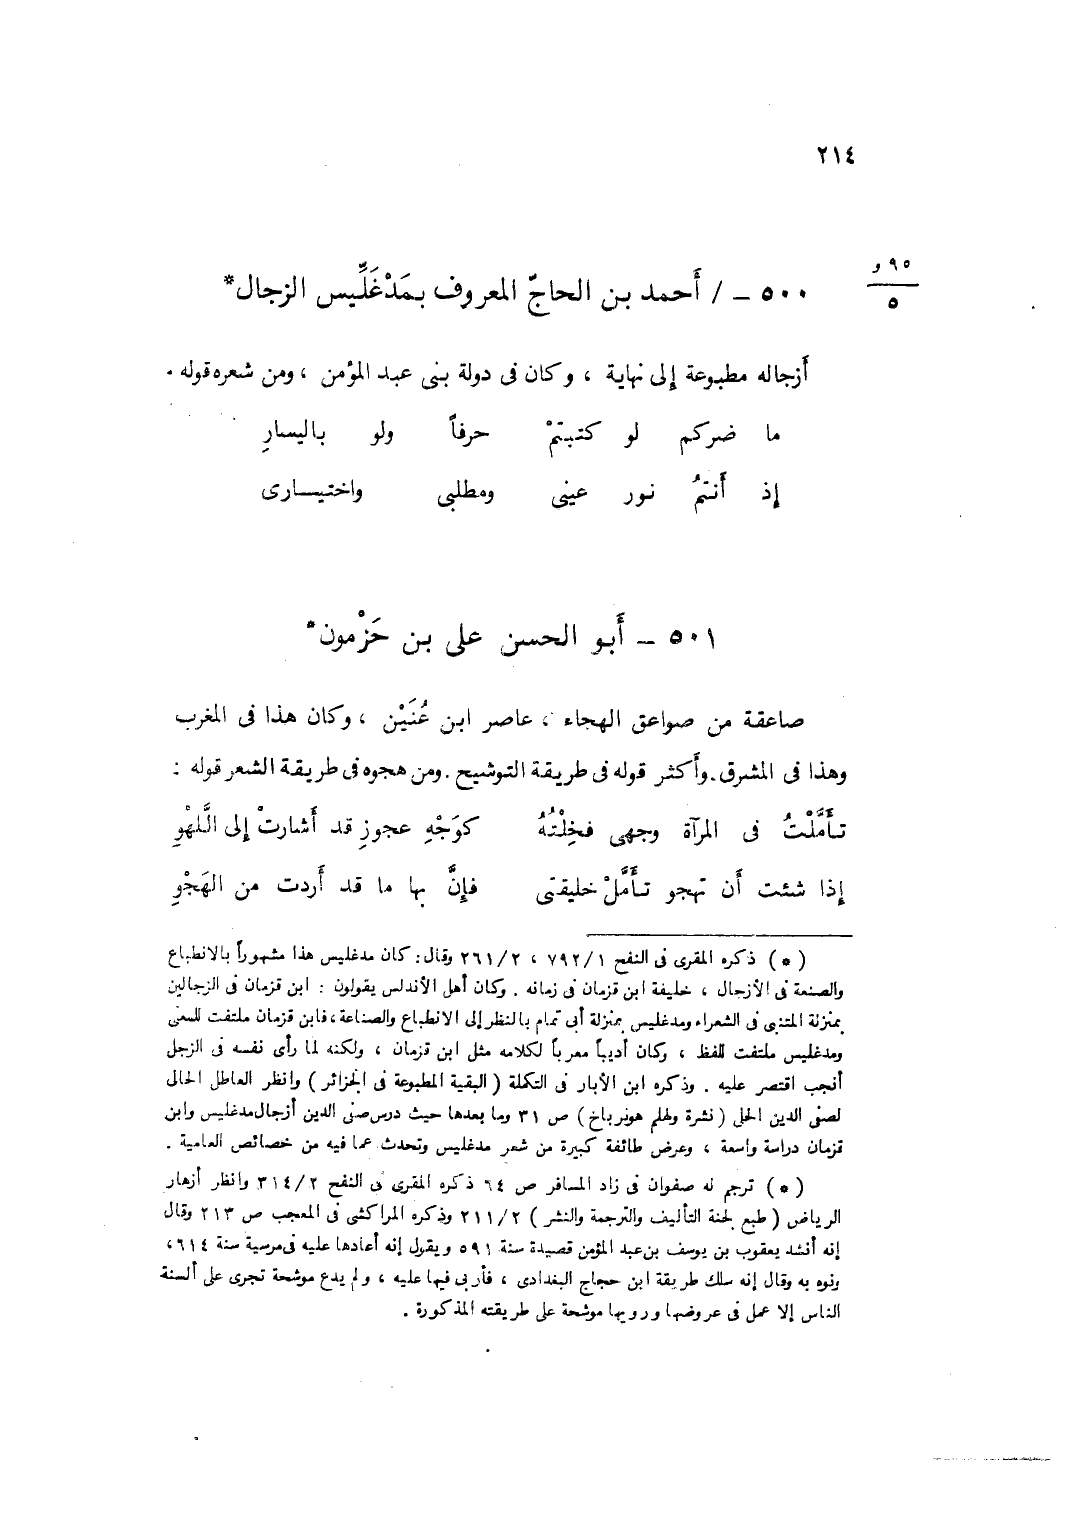 ٢١٤
٩٥ و
٥
٥٠٠ – / أَحمد بن الحاجّ المعروف بمَدْغَلِّيس الزجال*
أَزجاله مطبوعة إلى نهاية ، وكان فى دولة بنى عبد المؤمن ، ومن شعره قوله .
ما ضركم لو كتبتمْ حرفاً ولو باليسارِ
إذ أَنتمُ نور عينى ومطلبى واختيارى
٥٠١ – أَبو الحسن على بن حَزْمون*
صاعقة من صواعق الهجاء ، عاصر ابن عُنَيْن ، وكان هذا فى المغرب
وهذا فى المشرق . وأَكثر قوله فى طريقة التوشيح . ومن هجوه فى طريقة الشعر قوله :
تأَمَّلْتُ فى المرآة وجهى فخِلْتُهُ كوَجْهِ عجوزٍ قد أَشارتْ إلى اللَّهْوِ
إذا شئت أَن تهجو تأَمَّلْ خليقتى فإنَّ بها ما قد أَردت من الهَجْوِ
( * ) ذكره المقرى فى النفح ٧٩٢/١ ، ٢٦١/٢ وقال : كان مدغليس هذا مشهوراً بالانطباع
والصنعة فى الأزجال ، خليفة ابن قزمان فى زمانه . وكان أهل الأندلس يقولون : ابن قزمان فى الزجالين
بمنزلة المتنبى فى الشعراء ومدغليس بمنزلة أبى تمام بالنظر إلى الانطباع والصناعة ، فابن قزمان ملتفت للمعنى
ومدغليس ملتفت للفظ ، وكان أديباً معرباً لكلامه مثل ابن قزمان ، ولكنه لما رأى نفسه فى الزجل
أنجب اقتصر عليه . وذكره ابن الأبار فى التكلة ( البقية المطبوعة فى الجزائر ) وانظر العاطل الحالى
لصفى الدين الحلى ( نشرة ولهلم هونرباخ ) ص ٣١ وما بعدها حيث درس صفى الدين أزجال مدغليس وابن
قزمان دراسة واسعة ، وعرض طائفة كبيرة من شعر مدغليس وتحدث عما فيه من خصائص العامية .
( * ) ترجم له صفوان فى زاد المسافر ص ٦٤ ذكره المقرى فى النفح ٣١٤/٢ وانظر أزهار
الرياض ( طبع لجنة التأليف والترجمة والنشر ) ٢١١/٢ وذكره المراكشى فى المعجب ص ٢١٣ وقال
إنه أنشد يعقوب بن يوسف بن عبد المؤمن قصيدة سنة ٥٩١ ويقول إنه أعادها عليه فى مرسية سنة ٦١٤ ،
ونوه به وقال إنه سلك طريقة ابن حجاج البغدادى ، فأربى فيها عليه ، ولم يدع موشحة تجرى على ألسنة
الناس إلا عمل فى عروضها ورويها موشحة على طريقته المذكورة .